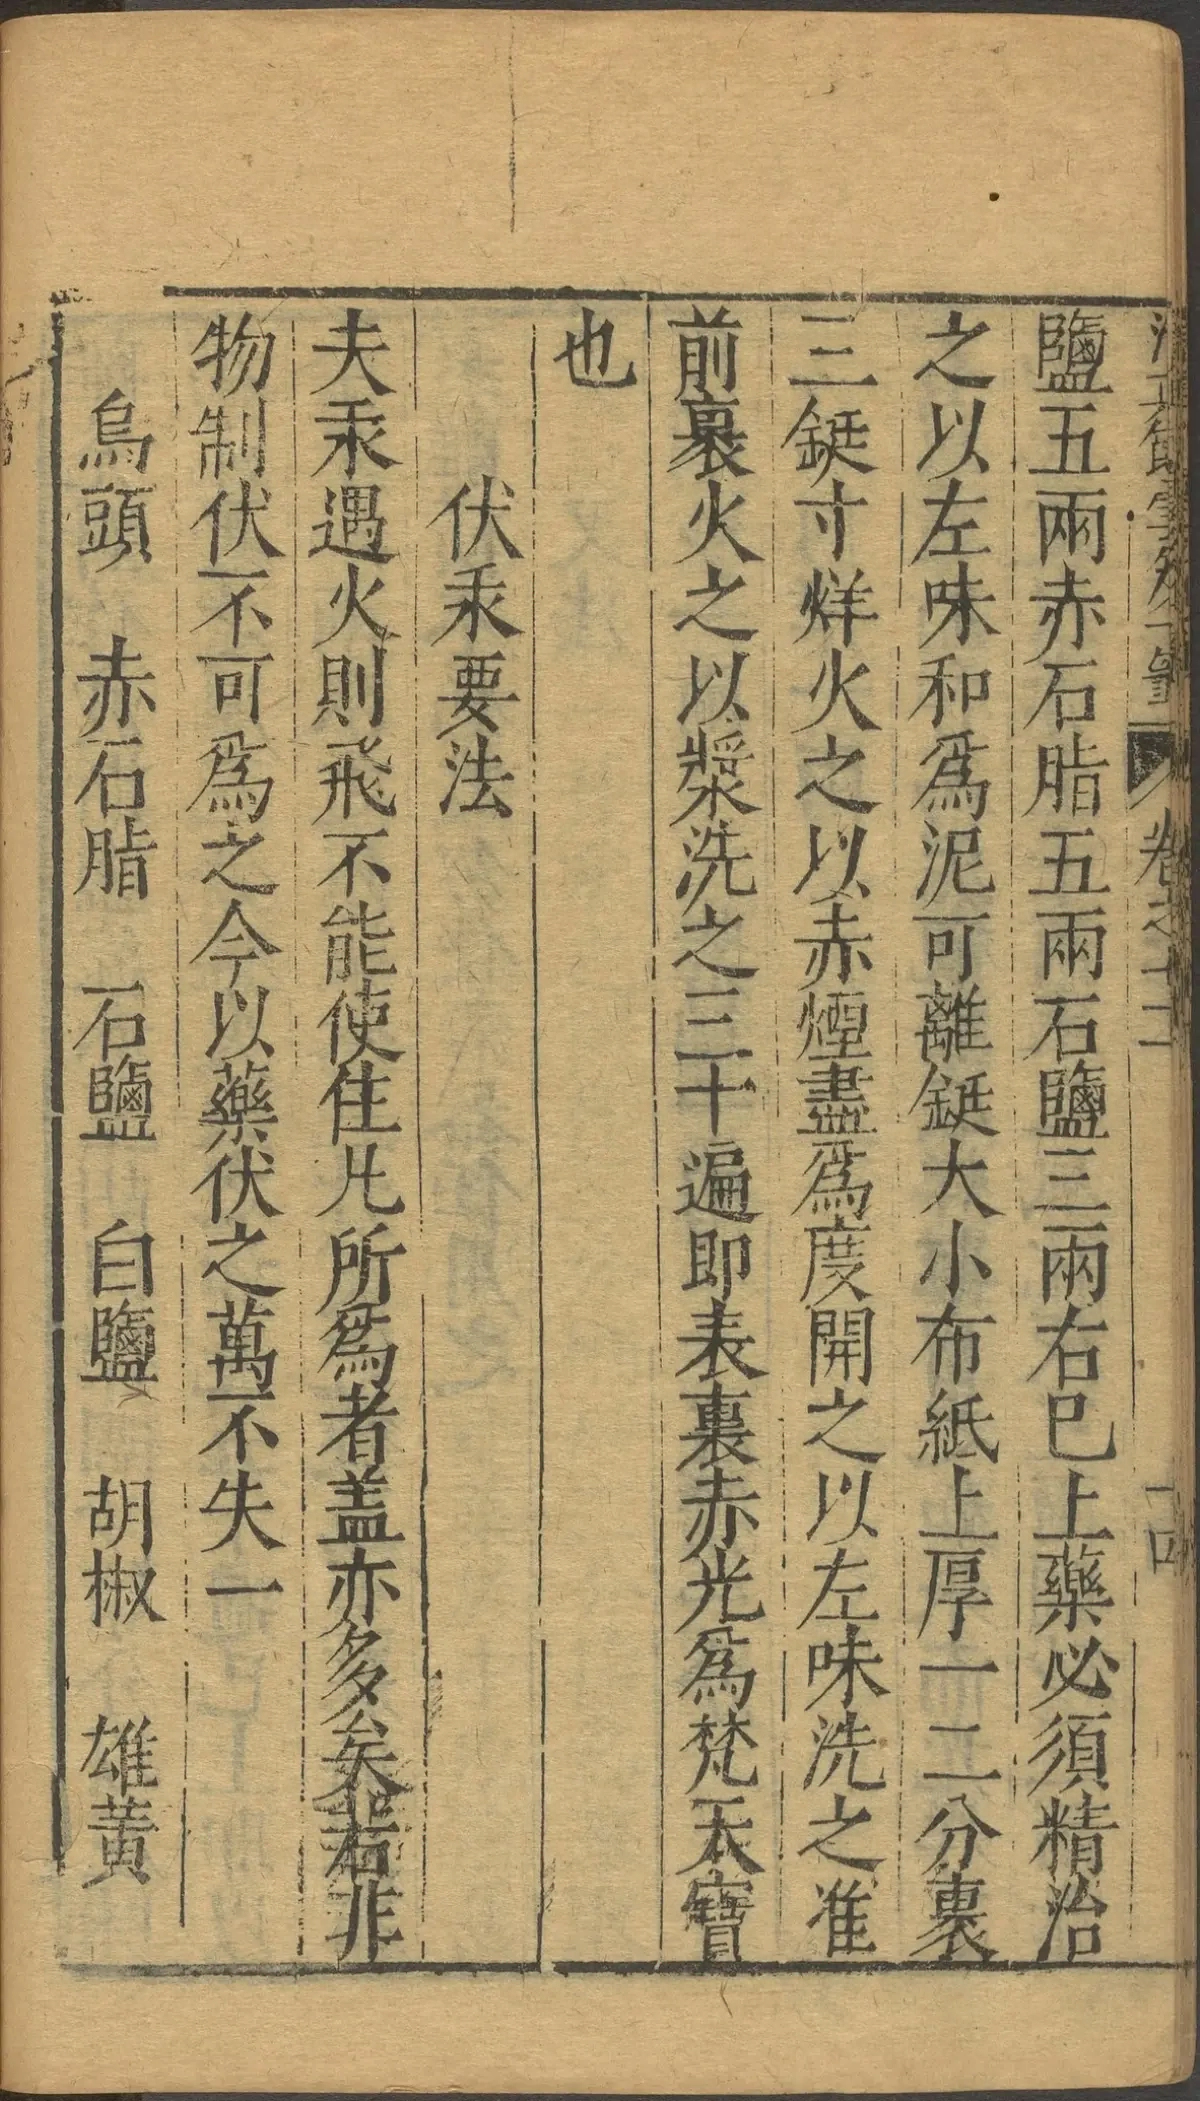 卷之十二 十四
鹽五兩赤石脂五兩石鹽三兩右巳上藥必須精治
之以左味和爲泥可離鋌大小布紙上厚一二分裹
三鋌寸烊火之以赤煙盡爲度開之以左味洗之准
前裹火之以漿洗之三十遍即表裏赤光爲梵天寶
也
伏汞要法
夫汞遇火則飛不能使住凡所爲者盖亦多矣若非
物制伏不可爲之今以藥伏之萬不失一
烏頭 赤石脂 石鹽 白鹽 胡椒 雄黄